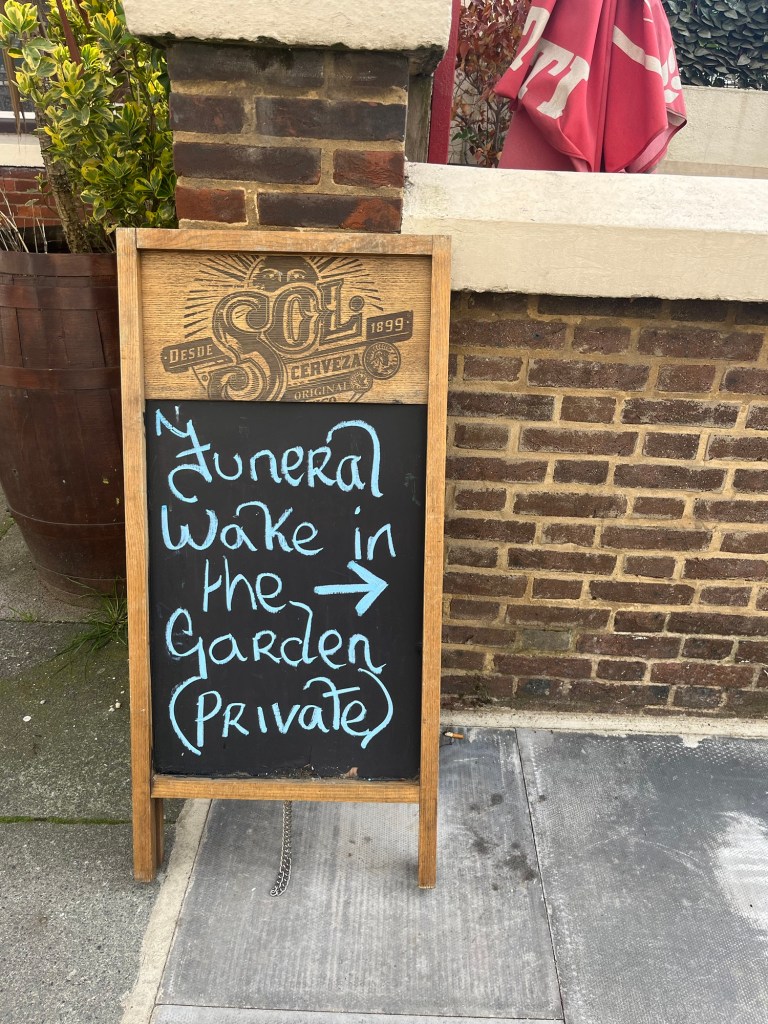 DESDE SOL 1899
CERVEZA
ORIGINAL
Funeral
Wake in
the →
Garden
(Private)